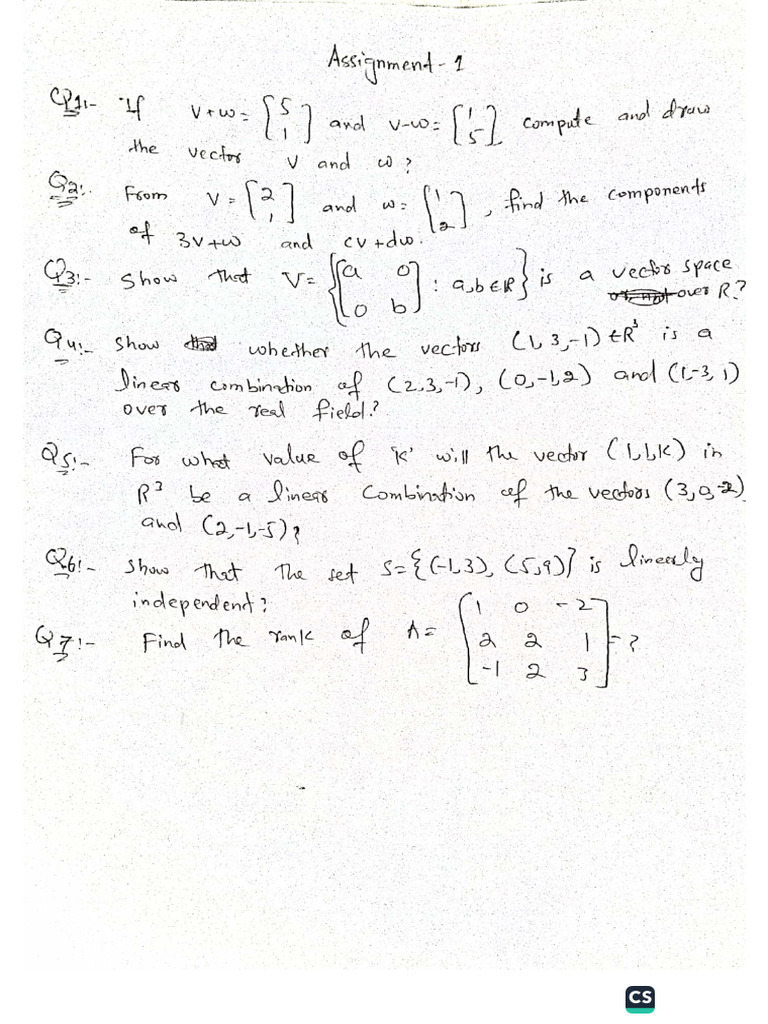 Assignment - 1
Q1:- If v+w= [5 1] and v-w= [1 5] compute and draw
the vector v and w?
Q2:- From v = [2 1] and w= [1 2], find the components
of 3v+w and cv+dw.
Q3:- Show that V= {[a 0 0 b] : a,b∈R} is a vector space
over R?
Q4:- Show whether the vectors (1, 3, -1) ∈R³ is a
linear combination of (2,3,-1), (0,-1,2) and (1,-3, 1)
over the real field?
Q5:- For what value of 'K' will the vector (1,1,K) in
R³ be a linear combination of the vectors (3,0,-2)
and (2,-1,-5)?
Q6:- Show that the set S={(-1,3), (5,9)} is linearly
independent?
Q7:- Find the rank of A= [1 0 -2 2 2 1 -1 2 3] - ?
CS